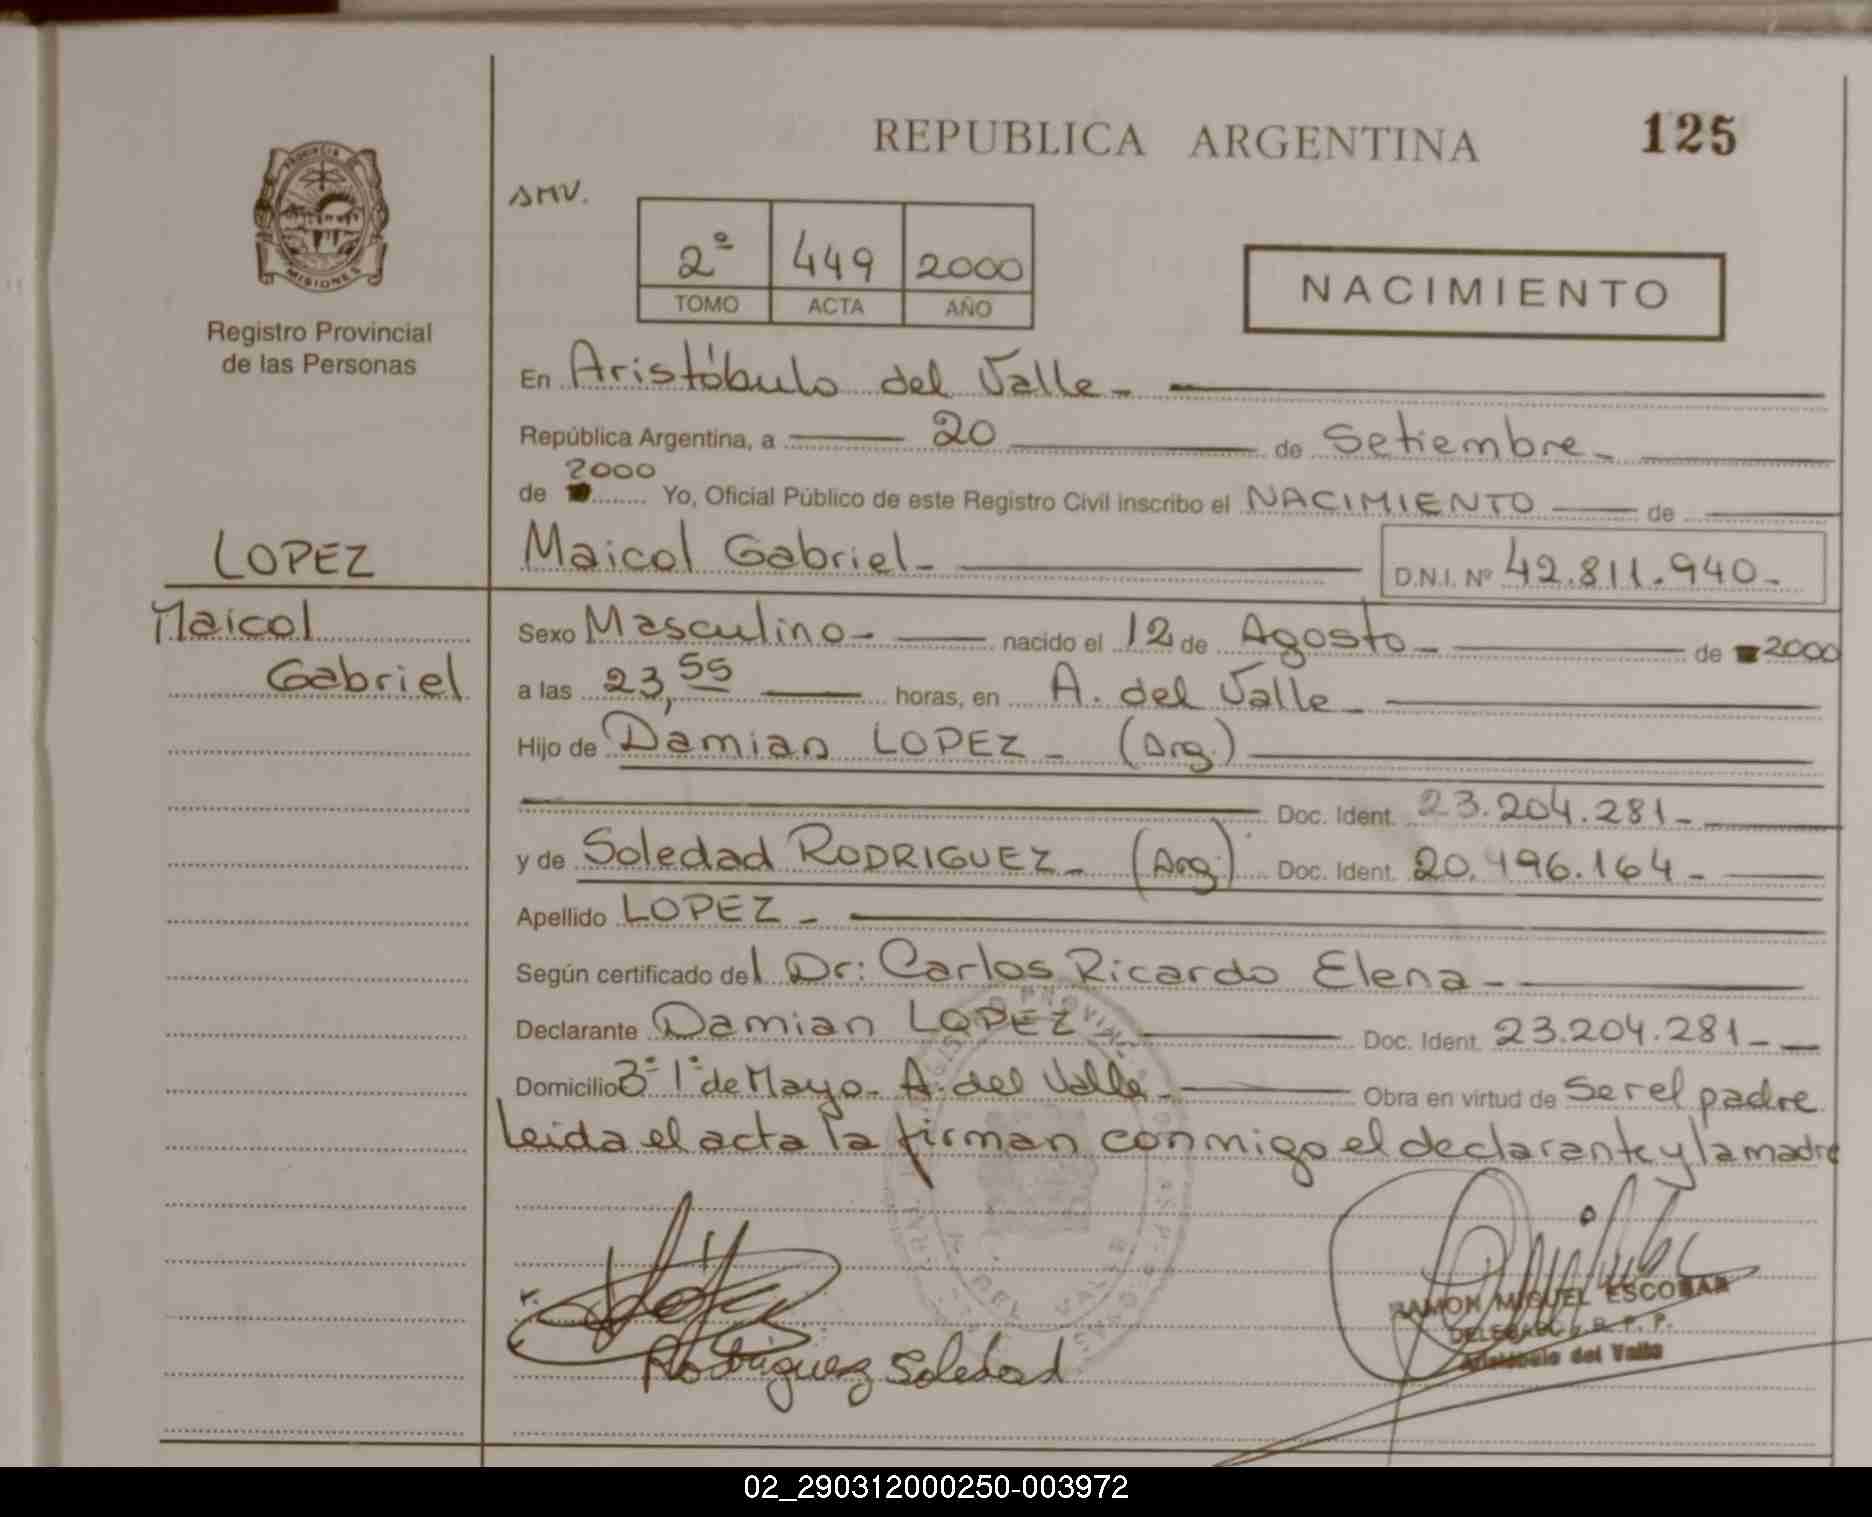 REPUBLICA ARGENTINA
125
PROVINCIA DE
MISIONES
Registro Provincial
de las Personas
SMV.
2º 449 2000
TOMO ACTA AÑO
NACIMIENTO
En Aristóbulo del Valle-
República Argentina, a 20 de Setiembre-
de 2000 Yo, Oficial Público de este Registro Civil inscribo el NACIMIENTO de
LOPEZ
Maicol
Gabriel
Maicol Gabriel- D.N.I. Nº 42.811.940-
Sexo Masculino- nacido el 12 de Agosto- de 2000
a las 23,55 horas, en A. del Valle-
Hijo de Damian LOPEZ- (Arg.)
Doc. Ident. 23.204.281-
y de Soledad RODRIGUEZ- (Arg.) Doc. Ident. 20.496.164-
Apellido LOPEZ-
Según certificado del Dr: Carlos Ricardo Elena-
Declarante Damian LOPEZ Doc. Ident. 23.204.281-
Domicilio Bº 1º de Mayo- A. del Valle- Obra en virtud de Ser el padre
Leida el acta la firman conmigo el declarante y la madre
Rodriguez Soledad
RAMON MIGUEL ESCOBAR
DELEGADO R. P. P.
Aristóbulo del Valle
02_290312000250-003972